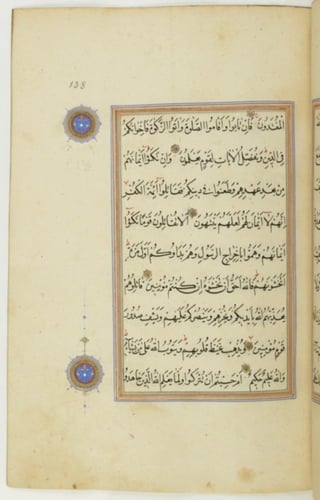 138
المعتدون فان تابوا واقاموا الصلوة واتوا الزكوة فاخوانكم
في الدين ونفصل الايات لقوم يعلمون وان نكثوا ايمانهم
من بعد عهدهم وطعنوا في دينكم فقاتلوا ائمة الكفر
انهم لا ايمان لهم لعلهم ينتهون الا تقاتلون قوما نكثوا
ايمانهم وهموا باخراج الرسول وهم بدؤكم اول مرة
اتخشونهم فالله احق ان تخشوه ان كنتم مؤمنين قاتلوهم
يعذبهم الله بايديكم ويخزهم وينصركم عليهم ويشف صدور
قوم مؤمنين ويذهب غيظ قلوبهم ويتوب الله على من يشآء
والله عليم حكيم ام حسبتم ان تتركوا ولما يعلم الله الذين جاهدوا